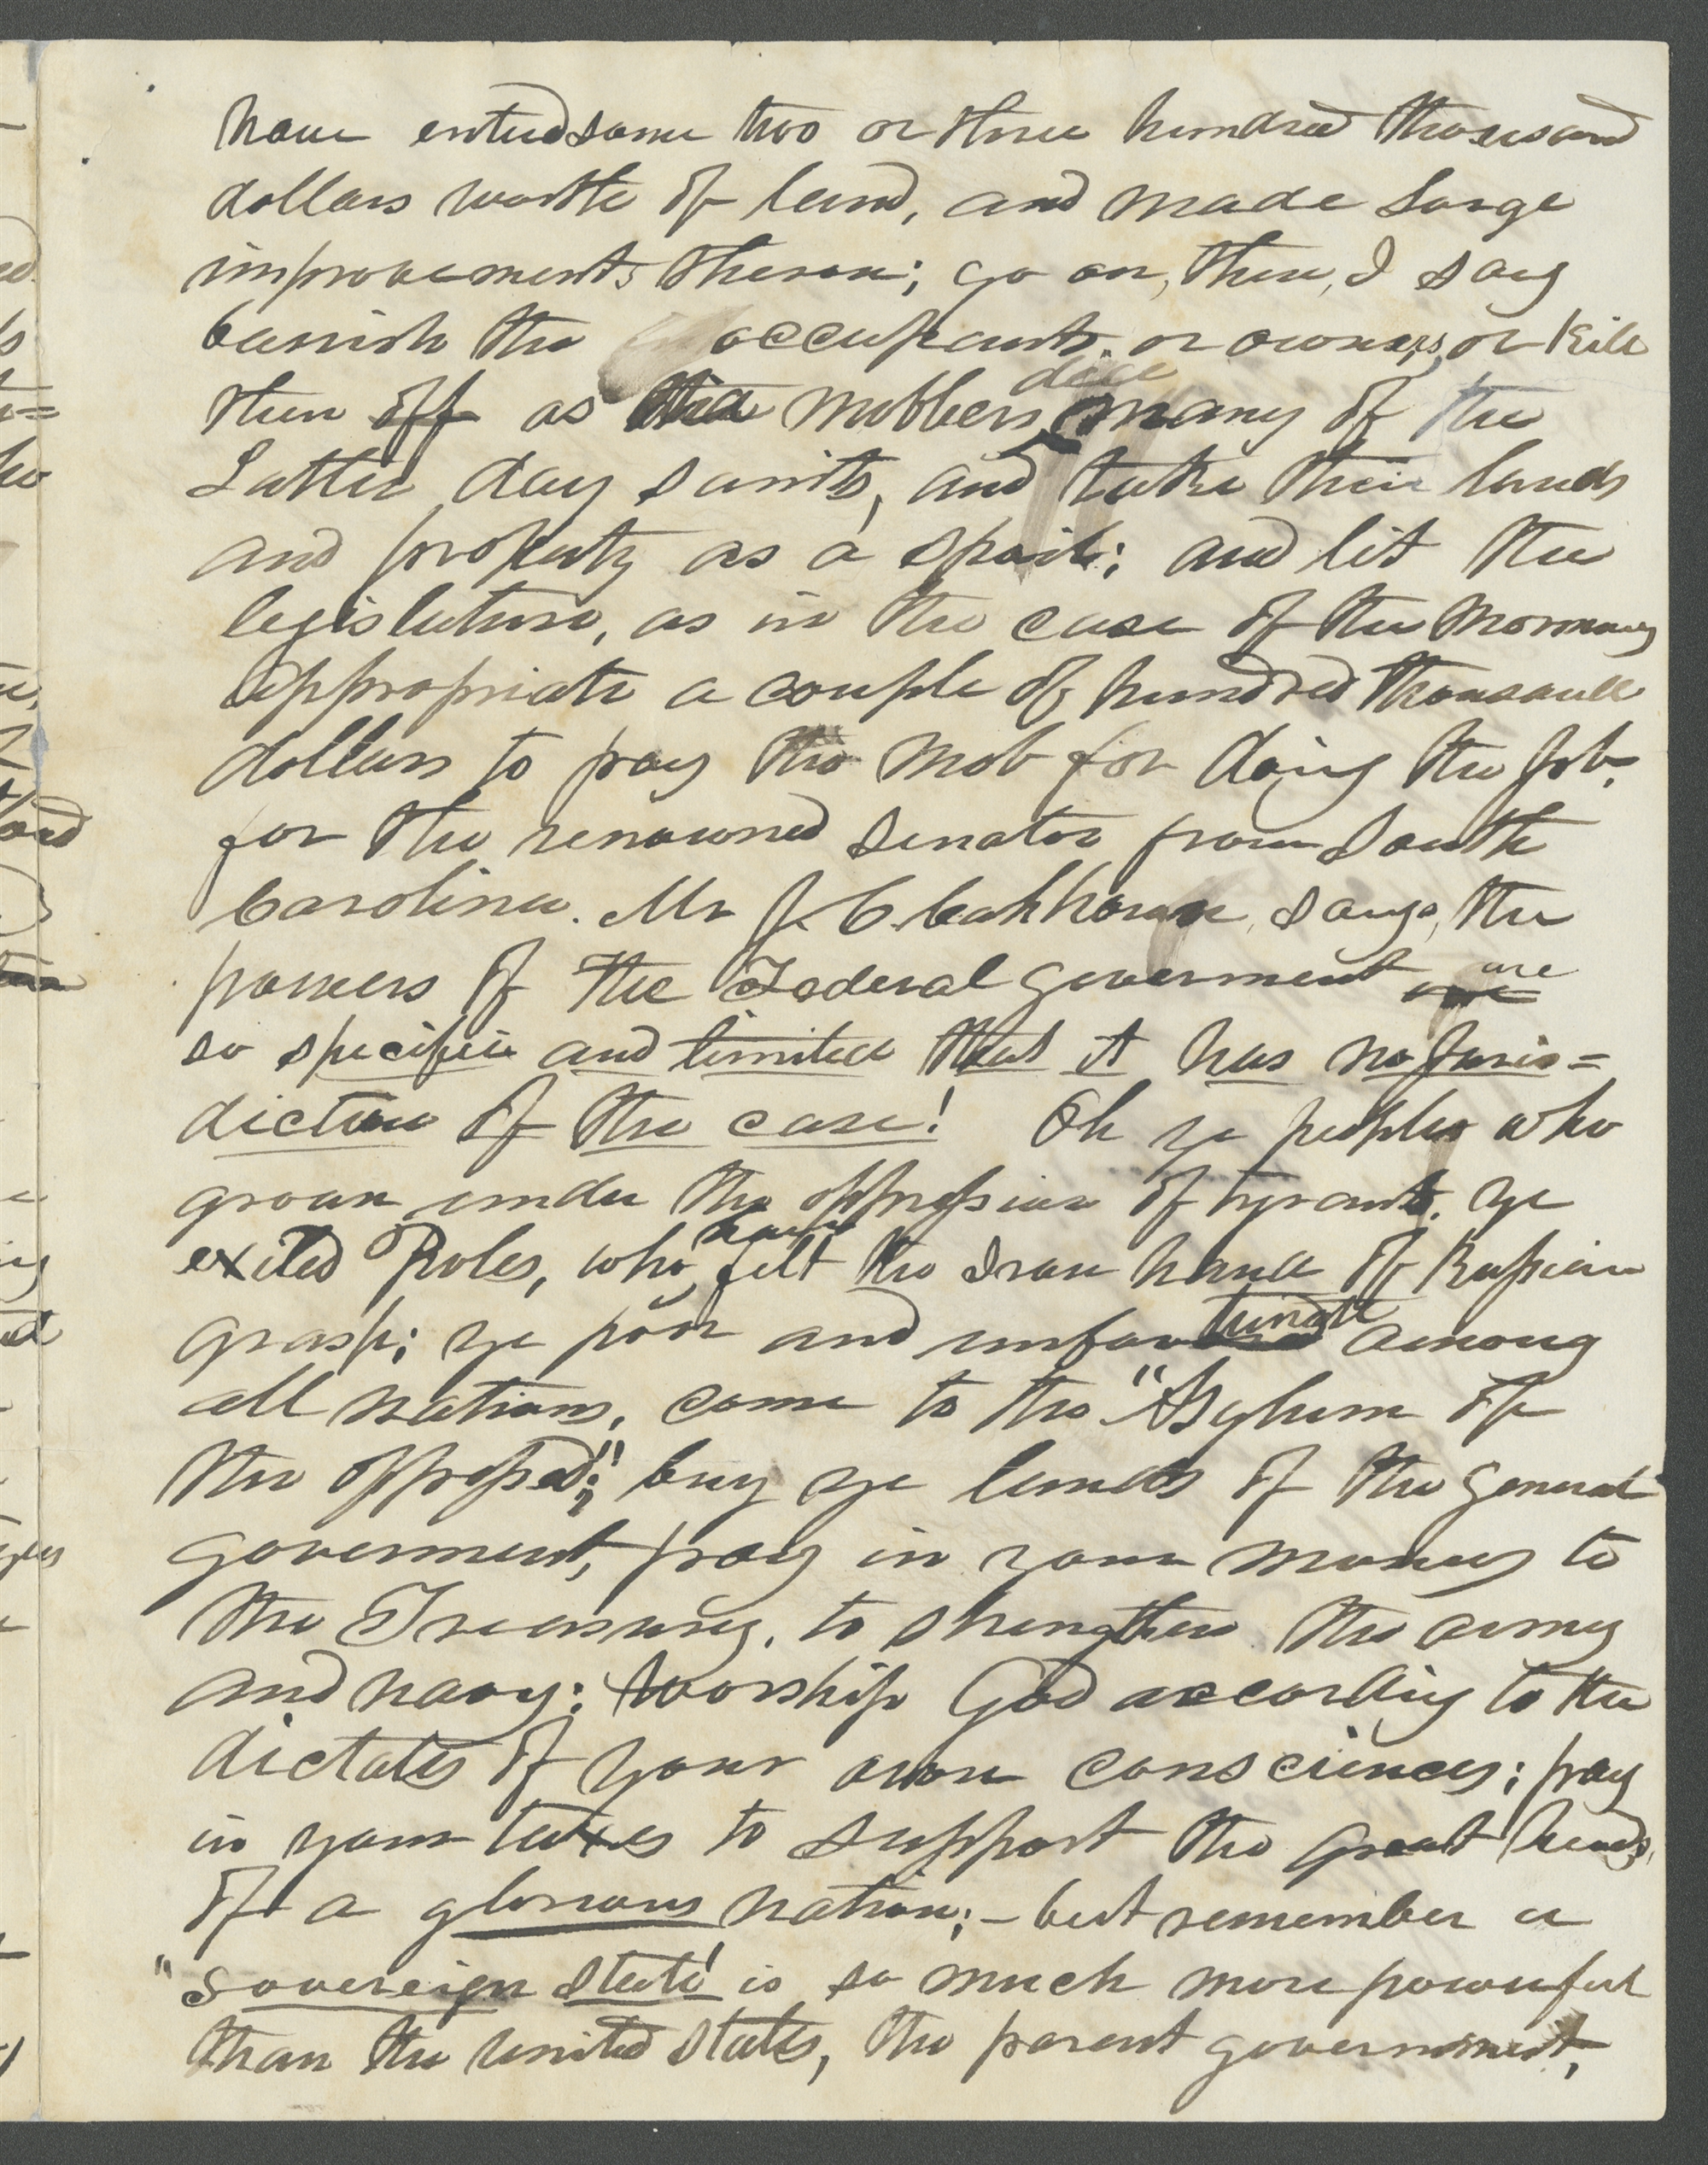 have entered some two or three hundred thousand
dollars worth of land, and made large
improvements thereon; go on, then, I say
banish the occupants or owners, or kill
them off as the mobbers did many of the
Latter day saints, and take their lands
and property as a spoil; and let the
legislature, as in the case of the Mormons
appropriate a couple of hundred thousand
dollars to pay the mob for doing the job,
for the renowned senator from South
Carolina. Mr J. C. Calhoun, says, the
powers of the Federal goverment are
so specific and limited that it has no juris=
diction of the case! Oh ye peoples who
groan under the oppression of tyrants, ye
exiled Poles, who have felt the Iron hand of Russian
grasp; ye poor and unfortunate among
all nations, come to the "Asylum of
the oppressed;" buy ye lands of the general
goverment, pay in your money to
the Treasury, to strengthen the army
and navy; worship God according to the
dictates of your own consciences; pay
in your taxes to support the great heads
of a glorious nation; - but remember a
"sovereign state!" is so much more powerful
than the united States, the parent government,